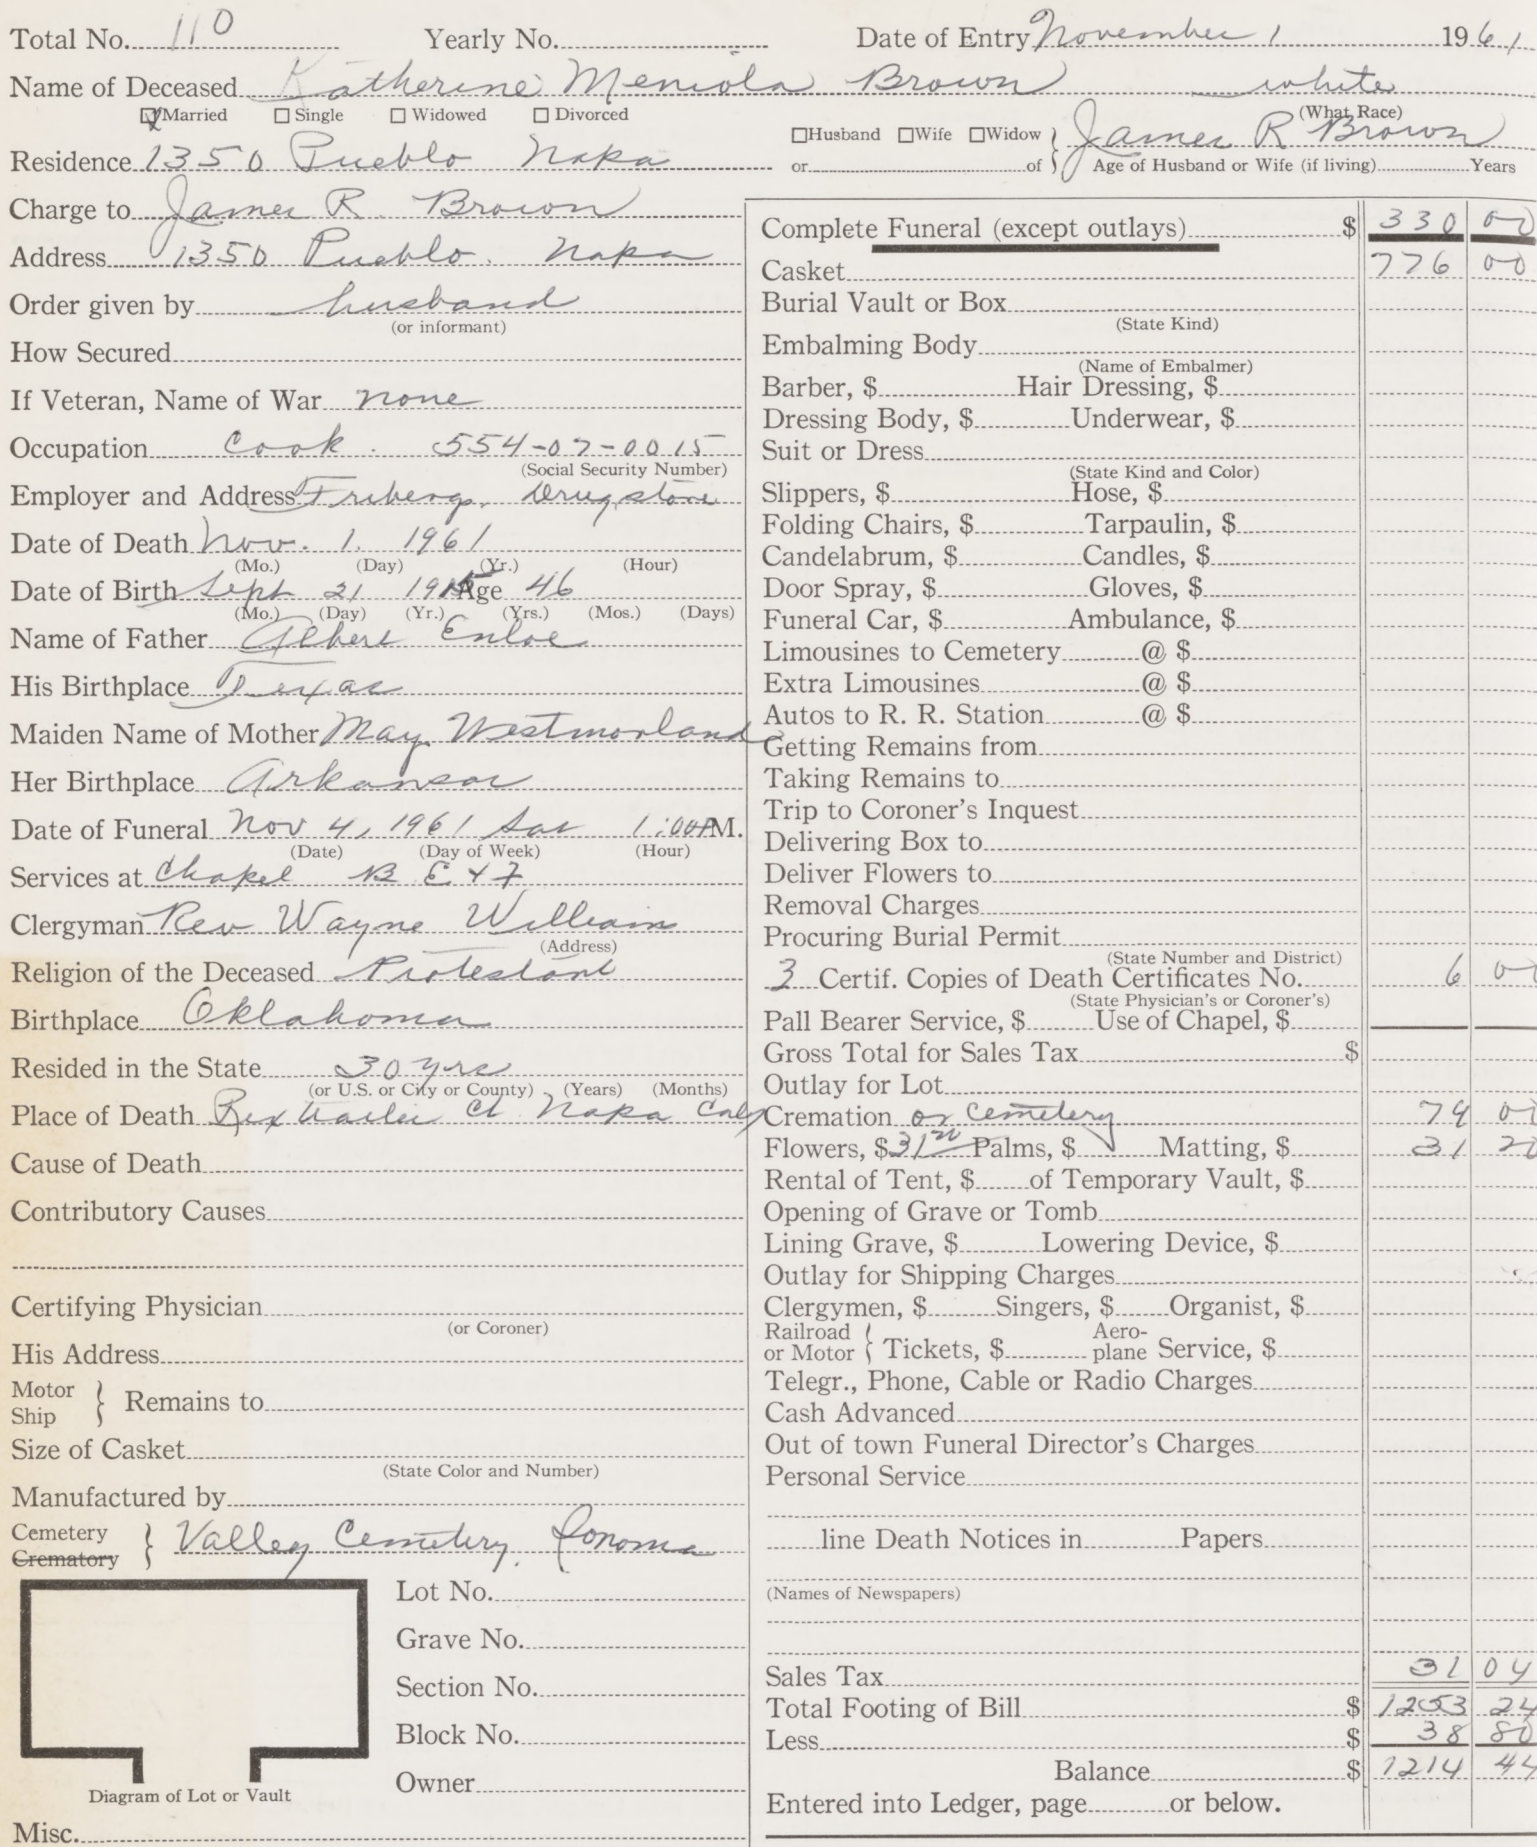 Total No. 110 Yearly No. Date of Entry November 1 1961
Name of Deceased Katherine Meniola Brown white
Married Single Widowed Divorced (What Race)
Husband Wife Widow James R Brown
or of Age of Husband or Wife (if living) Years
Residence 1350 Pueblo Napa
Charge to James R. Brown
Address 1350 Pueblo. Napa
Order given by husband
(or informant)
How Secured
If Veteran, Name of War none
Occupation Cook. 554-07-0015
(Social Security Number)
Employer and Address Fribergs. Drugstore
Date of Death Nov. 1. 1961
(Mo.) (Day) (Yr.) (Hour)
Date of Birth Sept 21 1915 Age 46
(Mo.) (Day) (Yr.) (Yrs.) (Mos.) (Days)
Name of Father Albert Enloe
His Birthplace Texas
Maiden Name of Mother May Westmorland
Her Birthplace Arkansas
Date of Funeral Nov 4, 1961 Sat 1:00 PM.
(Date) (Day of Week) (Hour)
Services at Chapel B E & F
Clergyman Rev Wayne William
(Address)
Religion of the Deceased Protestant
Birthplace Oklahoma
Resided in the State 30 yrs
(or U.S. or City or County) (Years) (Months)
Place of Death Rex Trailer Ct Napa Calif
Cause of Death
Contributory Causes
Certifying Physician
(or Coroner)
His Address
Motor
Ship Remains to
Size of Casket
(State Color and Number)
Manufactured by
Cemetery
Crematory Valley Cemetery, Sonoma
Lot No.
Grave No.
Section No.
Block No.
Owner
Diagram of Lot or Vault
Misc.
Complete Funeral (except outlays) $ 330 00
Casket 776 00
Burial Vault or Box
(State Kind)
Embalming Body
(Name of Embalmer)
Barber, $ Hair Dressing, $
Dressing Body, $ Underwear, $
Suit or Dress
(State Kind and Color)
Slippers, $ Hose, $
Folding Chairs, $ Tarpaulin, $
Candelabrum, $ Candles, $
Door Spray, $ Gloves, $
Funeral Car, $ Ambulance, $
Limousines to Cemetery @ $
Extra Limousines @ $
Autos to R. R. Station @ $
Getting Remains from
Taking Remains to
Trip to Coroner's Inquest
Delivering Box to
Deliver Flowers to
Removal Charges
Procuring Burial Permit
(State Number and District)
3 Certif. Copies of Death Certificates No. 6 00
(State Physician's or Coroner's)
Pall Bearer Service, $ Use of Chapel, $
Gross Total for Sales Tax $
Outlay for Lot
Cremation or Cemetery 79 00
Flowers, $ 31 20 Palms, $ Matting, $ 31 20
Rental of Tent, $ of Temporary Vault, $
Opening of Grave or Tomb
Lining Grave, $ Lowering Device, $
Outlay for Shipping Charges
Clergymen, $ Singers, $ Organist, $
Railroad
or Motor Tickets, $ Aero-
plane Service, $
Telegr., Phone, Cable or Radio Charges
Cash Advanced
Out of town Funeral Director's Charges
Personal Service
line Death Notices in Papers
(Names of Newspapers)
Sales Tax 31 04
Total Footing of Bill $ 1253 24
Less $ 38 80
Balance $ 1214 44
Entered into Ledger, page or below.